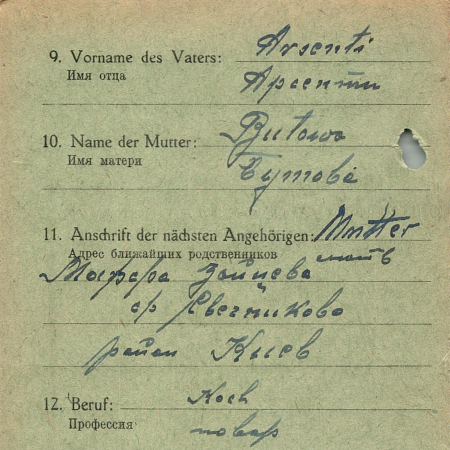 9. Vorname des Vaters: Arsenti
Имя отца Арсентии
10. Name der Mutter: Butowa
Имя матери Бутова
11. Anschrift der nächsten Angehörigen: Mutter
Адрес ближайших родственников мать
Зайцева
район Киев
12. Beruf: Koch
Профессия повар